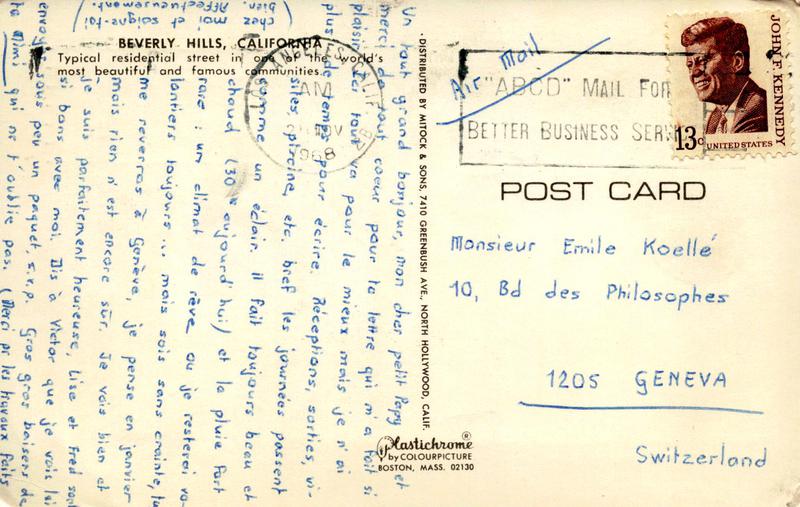 BEVERLY HILLS, CALIFORNIA
Typical residential street in one of the world's
most beautiful and famous communities.
Un tout grand bonjour, mon cher petit Papy et
merci de tout coeur pour ta lettre qui m'a fait si
plaisir. Ici tout va pour le mieux mais je n'ai
plus le temps pour écrire. Réceptions, sorties, vi-
sites, piscine, etc. bref les journées passent
comme un éclair. Il fait toujours beau et
chaud (30° aujourd'hui) et la pluie fort
rare : un climat de rêve où je resterai vo-
lontiers toujours... mais sois sans crainte, tu
me reverras à Genève, je pense en janvier
mais rien n'est encore sûr. Je vais bien et
je suis parfaitement heureuse, Lise et Fred sont
si bons avec moi. Dis à Victor que je vais lui
envoyer sous peu un paquet, s.v.p. Gros gros baisers de
ta Mimi qui ne t'oublie pas. (Merci pr les travaux faits
chez moi et soigne-toi
bien!) Affectueusement.
DISTRIBUTED BY MITOCK & SONS, 7410 GREENBUSH AVE., NORTH HOLLYWOOD, CALIF.
ANGELES, CALIF.
AM
NOV
1968
Air Mail
"ABCD" MAIL FOR
BETTER BUSINESS SERV
JOHN F. KENNEDY
13c UNITED STATES
POST CARD
Monsieur Emile Koellé
10, Bd des Philosophes
1205 GENEVA
Switzerland
Plastichrome ®
by COLOURPICTURE
BOSTON, MASS. 02130